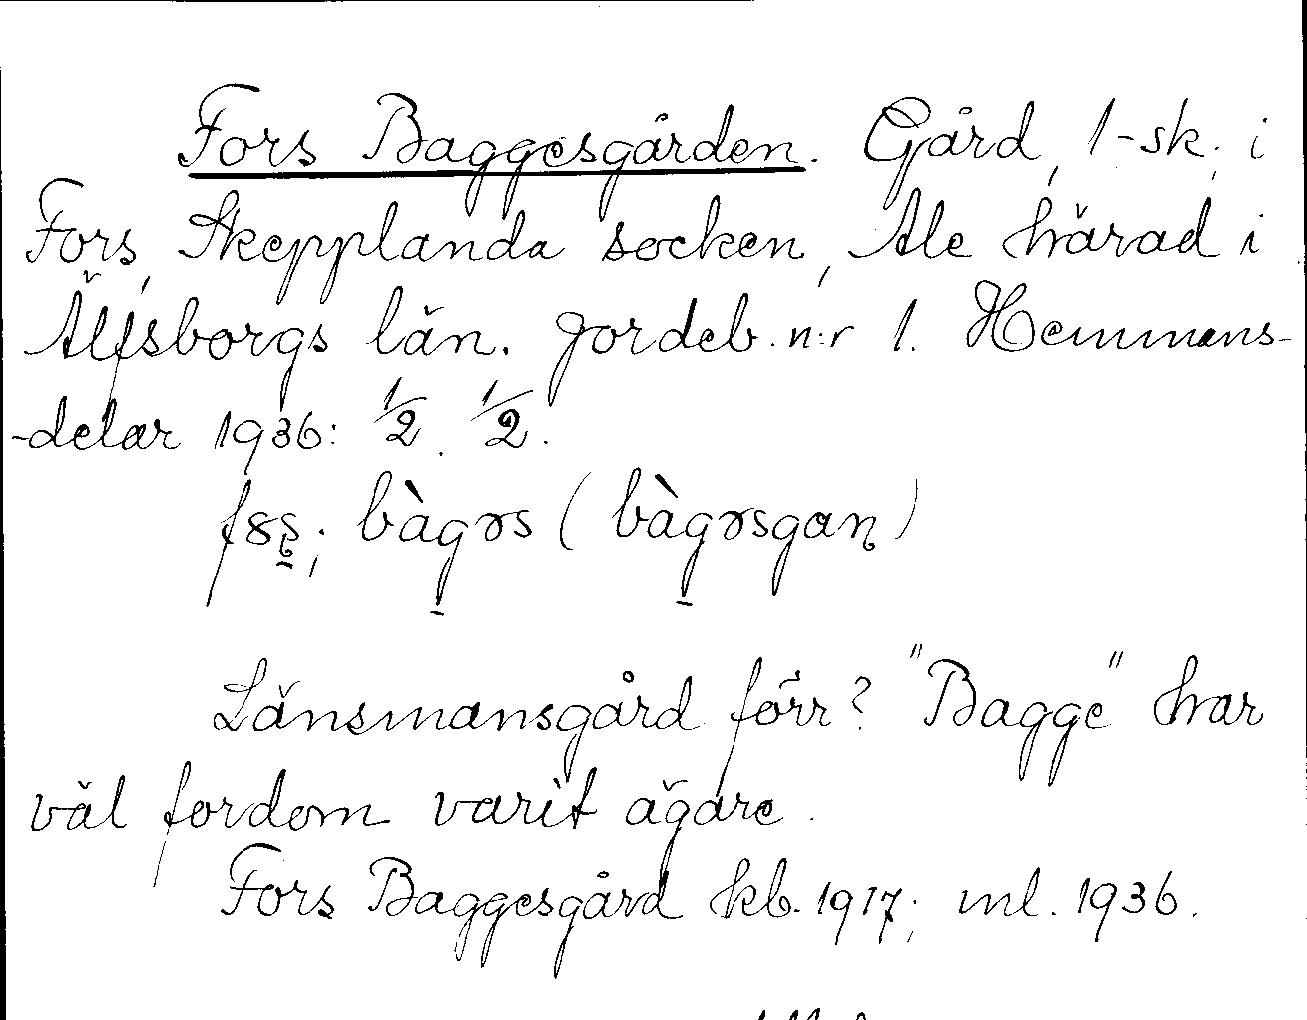 Fors Baggesgården. Gård, 1-sk. i
Fors, Skepplanda socken, Ale härad i
Älfsborgs län. Jordeb. n:r 1. Hemmans-
-delar 1936: 1/2. 1/2.
bàgəs (bàgəsgaɳ)
Länsmansgård förr? "Bagge" har
väl fordom varit ägare.
Fors Baggesgård kb. 1917; ml. 1936.